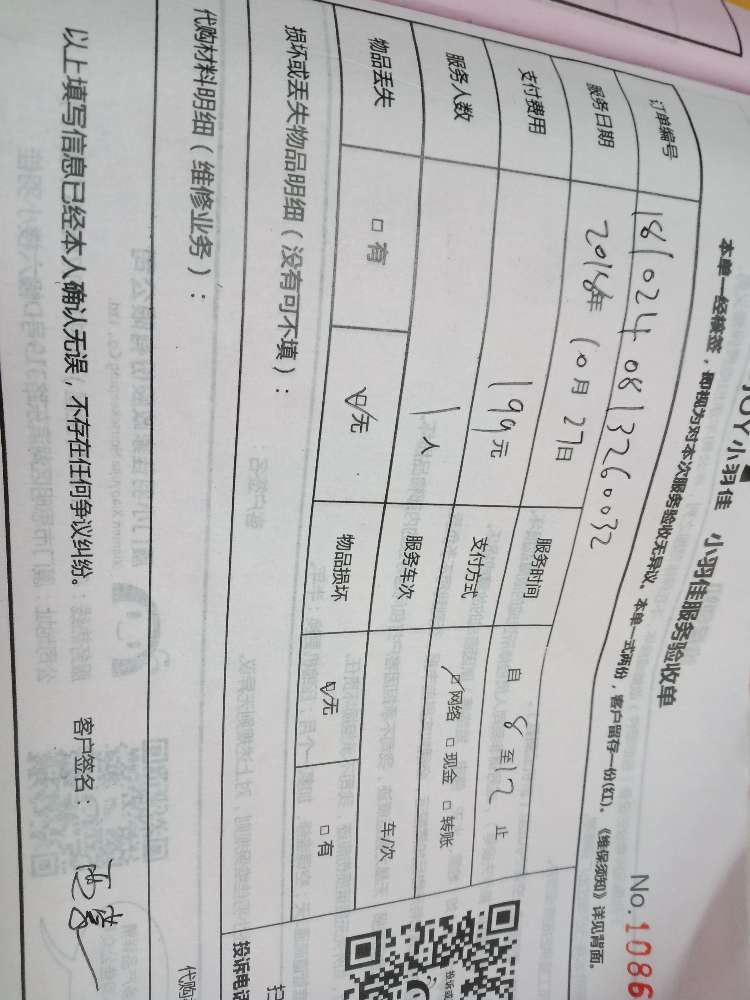 JOY小羽佳 小羽佳服务验收单
No.1086
本单一经移签，即视为对本次服务验收无异议。本单一式两份，客户留存一份(红)。《维保须知》详见背面。
订单编号 1810240813260032
服务日期 2018年10月27日 服务时间 自 8 至12 止
支付费用 199元 支付方式 ☑网络 □现金 □转账
服务人数 1人 服务车次 车/次
物品丢失 □有 ☑无 物品损坏 ☑无 □有
损坏或丢失物品明细（没有可不填）：
代购材料明细（维修业务）：
投诉电话
以上填写信息已经本人确认无误，不存在任何争议纠纷。 客户签名：